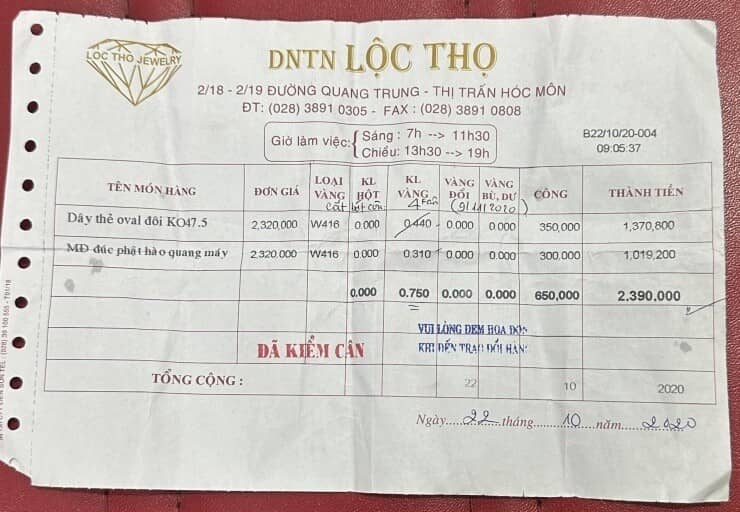 LOC THO JEWELRY
DNTN LỘC THỌ
2/18 - 2/19 ĐƯỜNG QUANG TRUNG - THỊ TRẤN HÓC MÔN
ĐT: (028) 3891 0305 - FAX : (028) 3891 0808
Giờ làm việc: Sáng : 7h --> 11h30
Chiều: 13h30 --> 19h
B22/10/20-004
09:05:37
TÊN MÓN HÀNG ĐƠN GIÁ LOẠI VÀNG KL HỘT KL VÀNG VÀNG ĐỔI VÀNG BÙ, DƯ CÔNG THÀNH TIỀN
cắt 4 Fân (9/11/2020)
Dây thẻ oval đôi KO47.5 2,320,000 W416 0.000 0.440 0.000 0.000 350,000 1,370,800
MĐ đúc phật hào quang máy 2,320,000 W416 0.000 0.310 0.000 0.000 300,000 1,019,200
0.000 0.750 0.000 0.000 650,000 2,390,000
VUI LÒNG ĐEM HÓA ĐƠN
KHI ĐẾN TRAO ĐỔI HÀNG
ĐÃ KIỂM CÂN
TỔNG CỘNG : 22 10 2020
Ngày 22 tháng 10 năm 2020